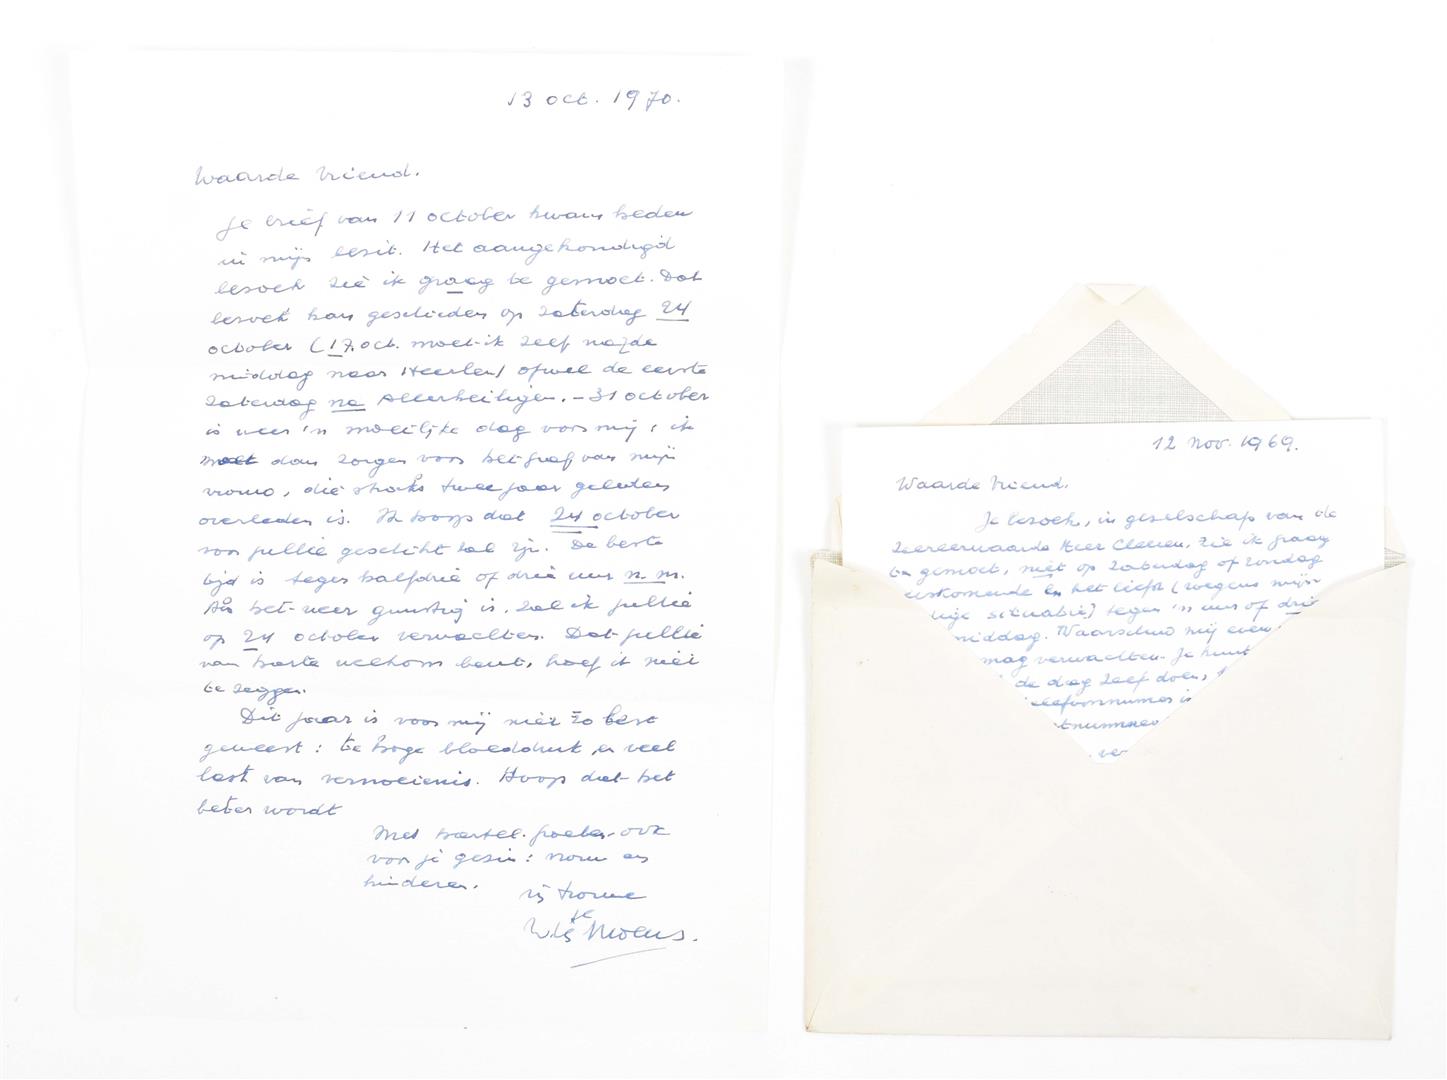 13 oct. 1970.
Waarde Vriend.
Je brief van 11 october kwam heden
in mijn bezit. Het aangekondigd
bezoek zie ik graag te gemoet. Dat
bezoek kan geschieden op zaterdag 24
october (17.oct. moet ik zelf na de
middag naar Heerlen) ofwel de eerste
zaterdag na Allerheiligen. – 31 october
is weer 'n moeilijke dag voor mij; ik
moet dan zorgen voor het graf van mijn
vrouw, die straks twee jaar geleden
overleden is. Ik hoop dat 24 october
voor jullie geschikt zal zijn. De beste
tijd is tegen halfdrie of drie uur n.m.
Als het weer gunstig is, zal ik jullie
op 24 october verwachten. Dat jullie
van harte welkom bent, hoef ik niet
te zeggen.
Dit jaar is voor mij niet zo best
geweest: te hoge bloeddruk en veel
last van vermoeienis. Hoop dat het
beter wordt
Met hartel. groeten, ook
voor je gezin: vrouw en
kinderen.
je trouwe
Wies Moens.
12 nov. 1969.
Waarde Vriend.
Je bezoek, in gezelschap van de
Zeereerwaarde Heer Cleven, zie ik graag
te gemoet, niet op zaterdag of zondag
eerstkomende en het liefst (wegens mijn
situatie) tegen 'n uur of drie
middag. Waarschuw mij even
mag verwachten. Je kunt
de dag zelf doen,
telefoonnummer is
netnummer
ver